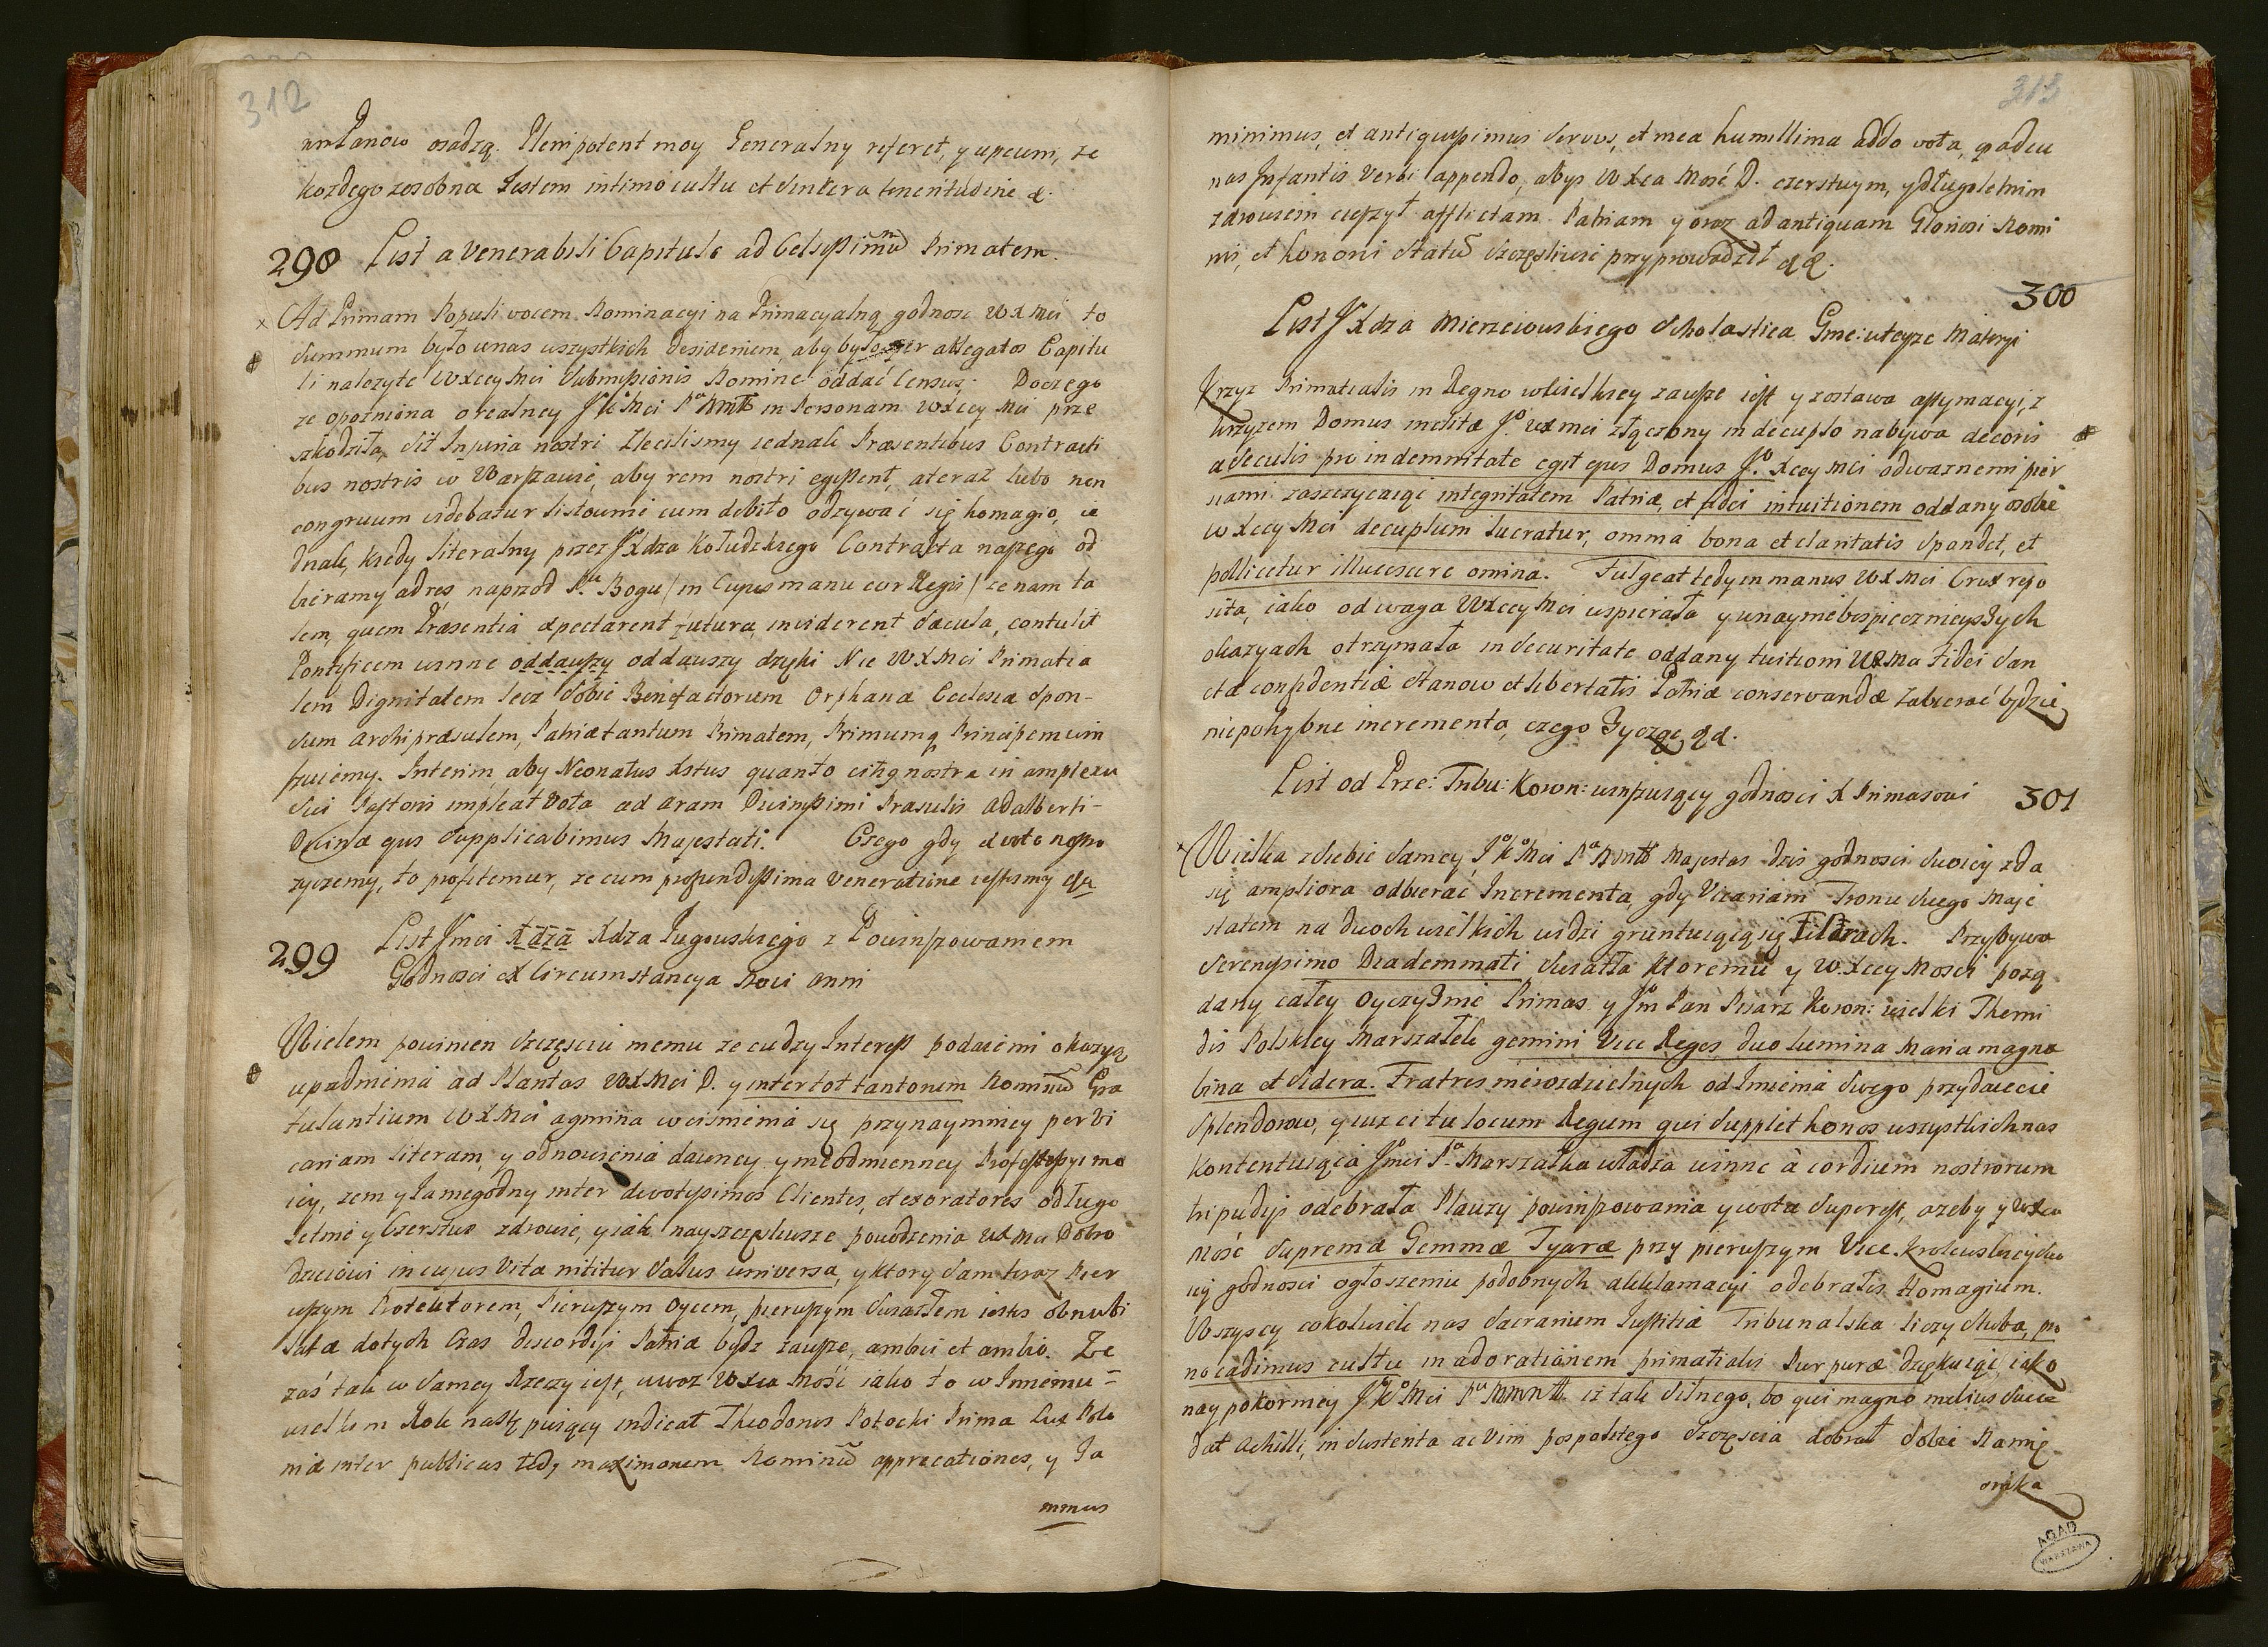 312
mPanow osadzą. Plenipotent moy Generalny referet, y upeum, ze
kozdego zosobna Iestem intimo cultu et sincera tenentudine &.
298 List a Venerabili Capitulo ad Celsissimũ Primatem.
Ad Primam Populi vocem Nominacyi na Primacyalną godnosc WXMci to
Summum było unas wszystkich desiderium, aby było per ablegatos Capitu
li nalezyte WXccy Mci Submissionis Nomine oddać Census. Doczego
ze opozniona o realney JKMci in Personam WXccy Mci prze
szkodziła, sit Injuria nostri Zlecilismy iednak Præsentibus Contracti
bus nostris w Warszawie, aby rem nostri egissent, ateraz lubo non
congruum videbatur listownie cum debito odzywać się homagio, ie
dnak, kiedy literalny przez JXdza Kołudzkiego Contracta naszego od
bieramy adres, naprzod Pu Bogu / in Cujus manu cor Regis / ze nam ta
lem, quem Præsentia expectarent futura, inviderent Sæcula, contulit
Pontificem winne oddauszy oddauszy dzięki Nie WXMci Primatia
lem Dignitatem lecz Sobie Benefactorum Orphanæ Ecclesiæ Spon-
sum Archipræsulem, Patriætantum Primatem, Primumq Principem win
szuiemy. Interim, aby Neonatus Xstus quanto citiq nostra in amplexu
sui Pastoris impleat vota ad aram Divinissimi Præsulis Adalberti-
Divinæ ejus supplicabimus Majestati. Czego gdy devote
zyczemy, to profitemur, ze cum profundissima Veneratione iestesmy
299 List Jmci Xdza Xdza Ługowskiego z Powinszowaniem
Godnosci ex Circumstancya Novi Anni
Wielem powinien Szczęsciu memu ze cudzy Interess podaiemi okazyą
upadnienia ad Plantas WXMci D. y inter tot tantorum Nominũ Gra
tulantium WXMci agmina wcisnienia się przynaymniey per Vi
cariam literam, y odnowienia dawney y nieodmienney Professyi mo
iey, zem y Ia niegodny inter devotissimos Clientes, et exoratores odługo
letnie y Czerstwe zdrowie, y iak nayszczęsliwsze powodzenia WXMu Dobro
dzieiowi in cujus Vita nititur Salus universa, y ktory Sam teraz Pier
wszym Protektorem, Pierwszym Oycem, pierwszym Swiatłem iestes obnubi
latæ dotych Czas discordiis Patriæ bydz zawsze, ambivi et ambio. Ze
zaś tak w Samey Rzeczy iest, uwoz WXca Mość iako to w Imieniu=
wielkim Rok nastę puiący indicat Theodorus Potocki Prima Lux Polo
niæ inter publicas tedy maximorum Nominũ apprecationes, y Ia
mmus
313
minimus, et antiquissimus Servus, et mea humillima addo vota, 
nas Infantis Verbi appendo, abys WXca Mość D. czerstwym, y długoletnim
zdrowiem cieszył afflictam Patriam y oraz ad antiquam Gloriosi Nomi
nis, et honoris Statũ Szczęsliwie przyprowadził &.
300
List JXdza Mierzeiewskiego Scholastica Gme: w teyze Materyi
Krzyz Primatialis in Regno wwielkiey zawsze iest y zostawa estymacyi, z
krzyzem Domus inclitæ Jo. WXMci złączony in decuplo nabywa decoris
a Sæculis pro indemnitate egit ejus Domus Jo. Xccy Mci odwaznemi pier
siami zaszczycaiąc integritatem Patriæ, et fidei intuitionem oddany osobie
WXccy Mci decuplum lucratur, omnia bona et claritatis Spondet, et
pollicetur illucescere omina. Fulgeat tedy in manus WXMci Crux repo
sita, iako odwaga WXccy Mci wspierała y w nayniebespiecznieyszych
okazyach otrzymała in securitate oddany tuitioni WXMa Fidei San
ctæ confidentiæ Stanow et libertatis Patriæ conservandæ Zabierać będzie
niepohybne incrementa, czego Zyczę &.
List od Prze: Tribu: Koron: winszuiący godnosci X Primasowi 301
Wielka z Siebie Samey, JKMci Majestas dzis godnosci Swoiey zda
się ampliora odbierać Incrementa, gdy Vicariam Tronu Swego Maje
statem na dwoch wielkich widzi gruntuiącą się Filarach. Przybywa
Serenissimo Diademmati Swiatła ktoremu y W.Xccy Mosci pozą
dany całey Oyczyznie Primas y Jm Pan Pisarz Koron: wielki Themi
dis Polskiey Marszałek gemini Vice Reges, duo lumina Maria magna
bina et Sidera. Fratres nierozdzielnych od Imienia Swego przydaiecie
Splendorow, y iuz ci tu locum Regum qui Supplet honos wszystkich nas
kontentuiąca Jmci Pa Marszałka władza winne à cordium nostrorum
tripudiis odebrała Plauzy powinszowania y vota Superest, azeby y WXca
Mość Supremæ Gemmæ Tyaræ przy pierwszym Vice. Krolewskiey Swo
iey godnosci ogłoszeniu podobnych akklamacyi odebrałes Homagium.
Wszyscy cokolwiek nas Sacrarium Iustitiæ Tribunalska liczy Sluba, pro
no cadimus cultu in adorationem primatialis Purpuræ dziękuiąc iako
naypokorniey JKMci iz tak Silnego, bo qui magno melius Succe
dat Achilli, in Sustenta ac Vim pospolitego Szczęscia dobrał Sobie Namię
snika
AGAD
WARSZAWA